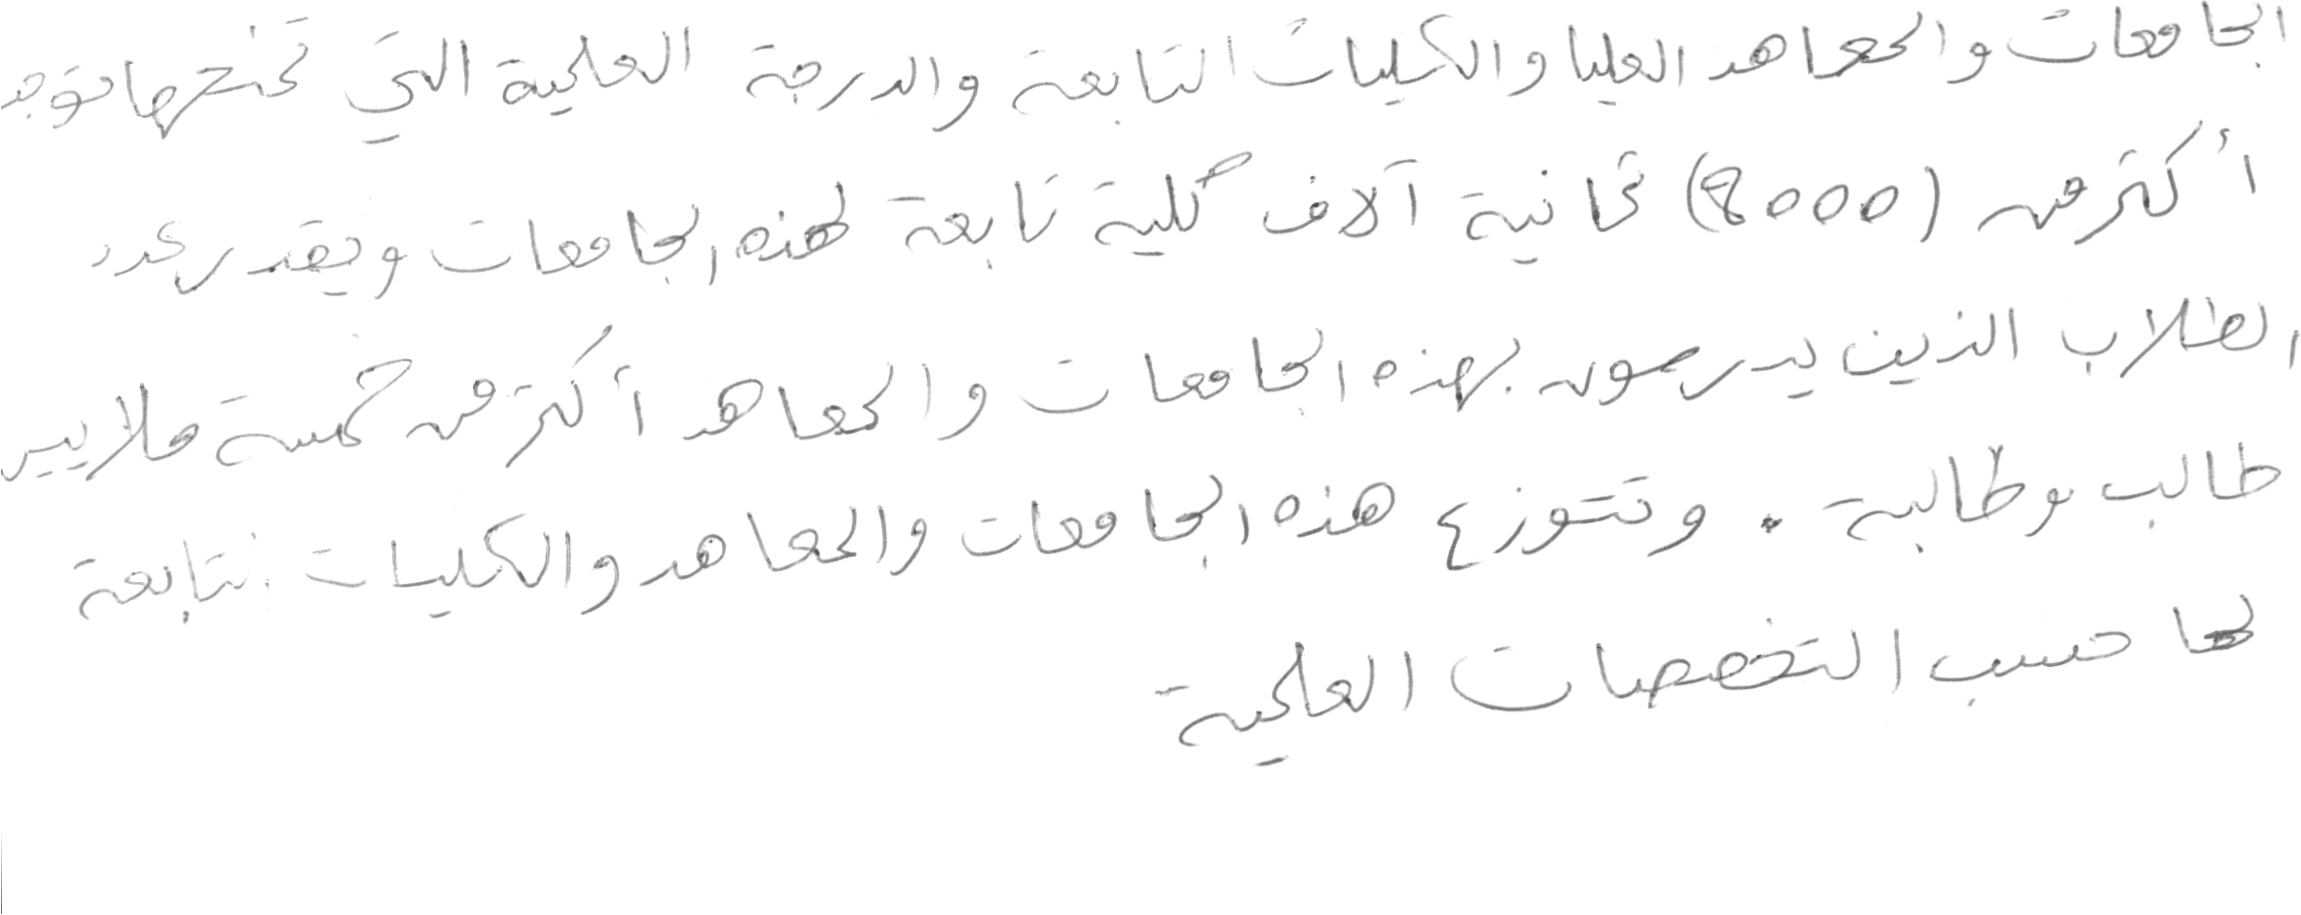 الجامعات والمعاهد العليا والكليات التابعة والدرجة العلمية التي تمنحها توجد
أكثر من (8000) ثمانية آلاف كلية تابعة لهذه الجامعات ويقدر عدد
الطلاب الذين يدرسون بهذه الجامعات والمعاهد أكثر من خمسة ملايير
طالب وطالبة . وتتوزع هذه الجامعات والمعاهد والكليات التابعة
لها حسب التخصصات العلمية